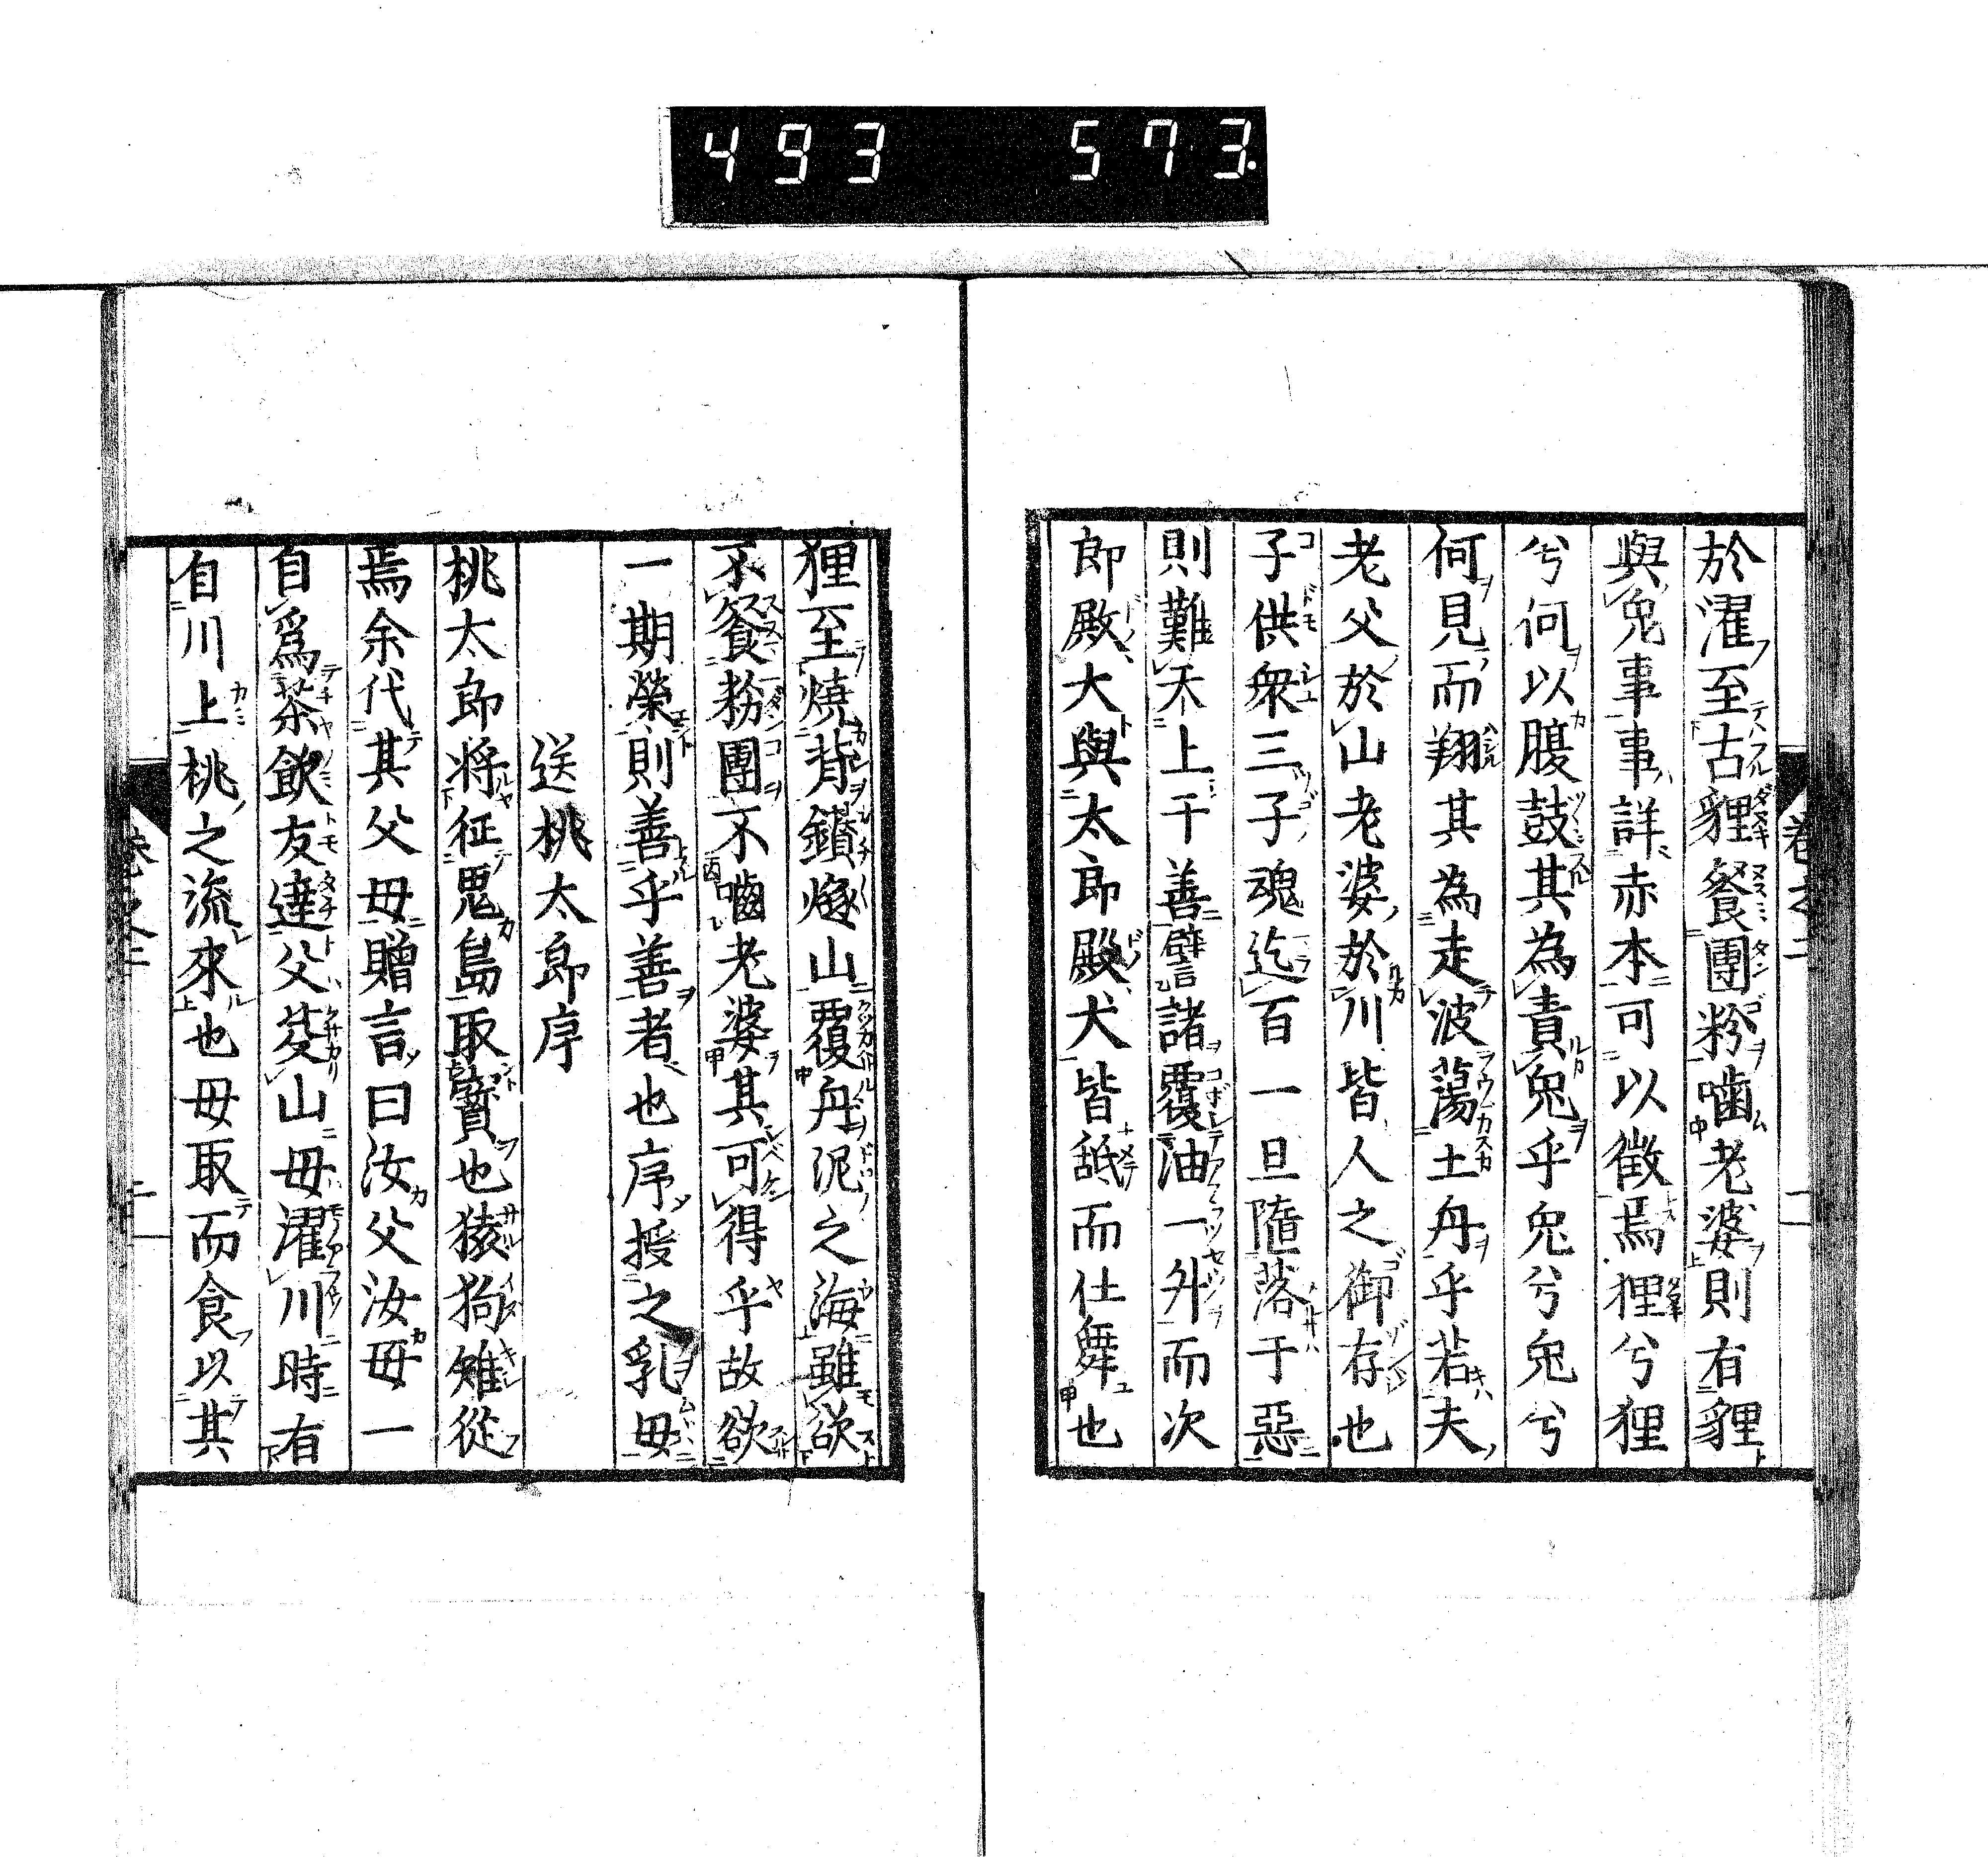 493 573
於濯至古貍餐團粉嚙老婆則有貍
與兔事事詳赤本可以徴焉狸兮狸
兮何以腹鼓其為責兔乎兔兮兔兮
何見而翔其為走波蕩土舟乎若夫
老父於山老婆於川皆人之御存也
子供衆三子魂迄百一旦墮落于惡
則難不上于善譬諸覆油一升而次
郎殿犬與太郎殿犬皆舐而仕舞也
卷之二
二
狸至燒背鑽燧山覆舟泥之海雖欲
不餐粉團不嚙老婆其可得乎故欲
一期榮則善乎善者也序授之乳母
送桃太郎序
桃太郎將征鬼島取寶也猿狗雉從
焉余代其父母贈言曰汝父汝母一
自為茶飲友達父芟山母濯川時有
自川上桃之流來也母取而食以其